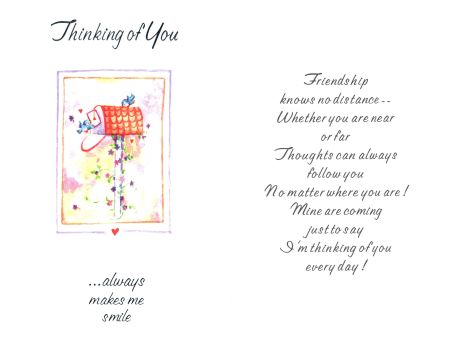 Thinking of You
...always
makes me
smile
Friendship
knows no distance--
Whether you are near
or far
Thoughts can always
follow you
No matter where you are!
Mine are coming
just to say
I'm thinking of you
every day!